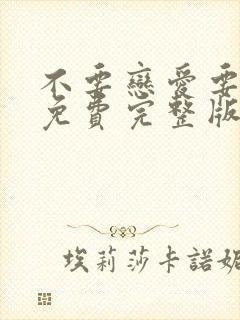 不要戀愛要
免費完整版
埃莉莎卡諾妮